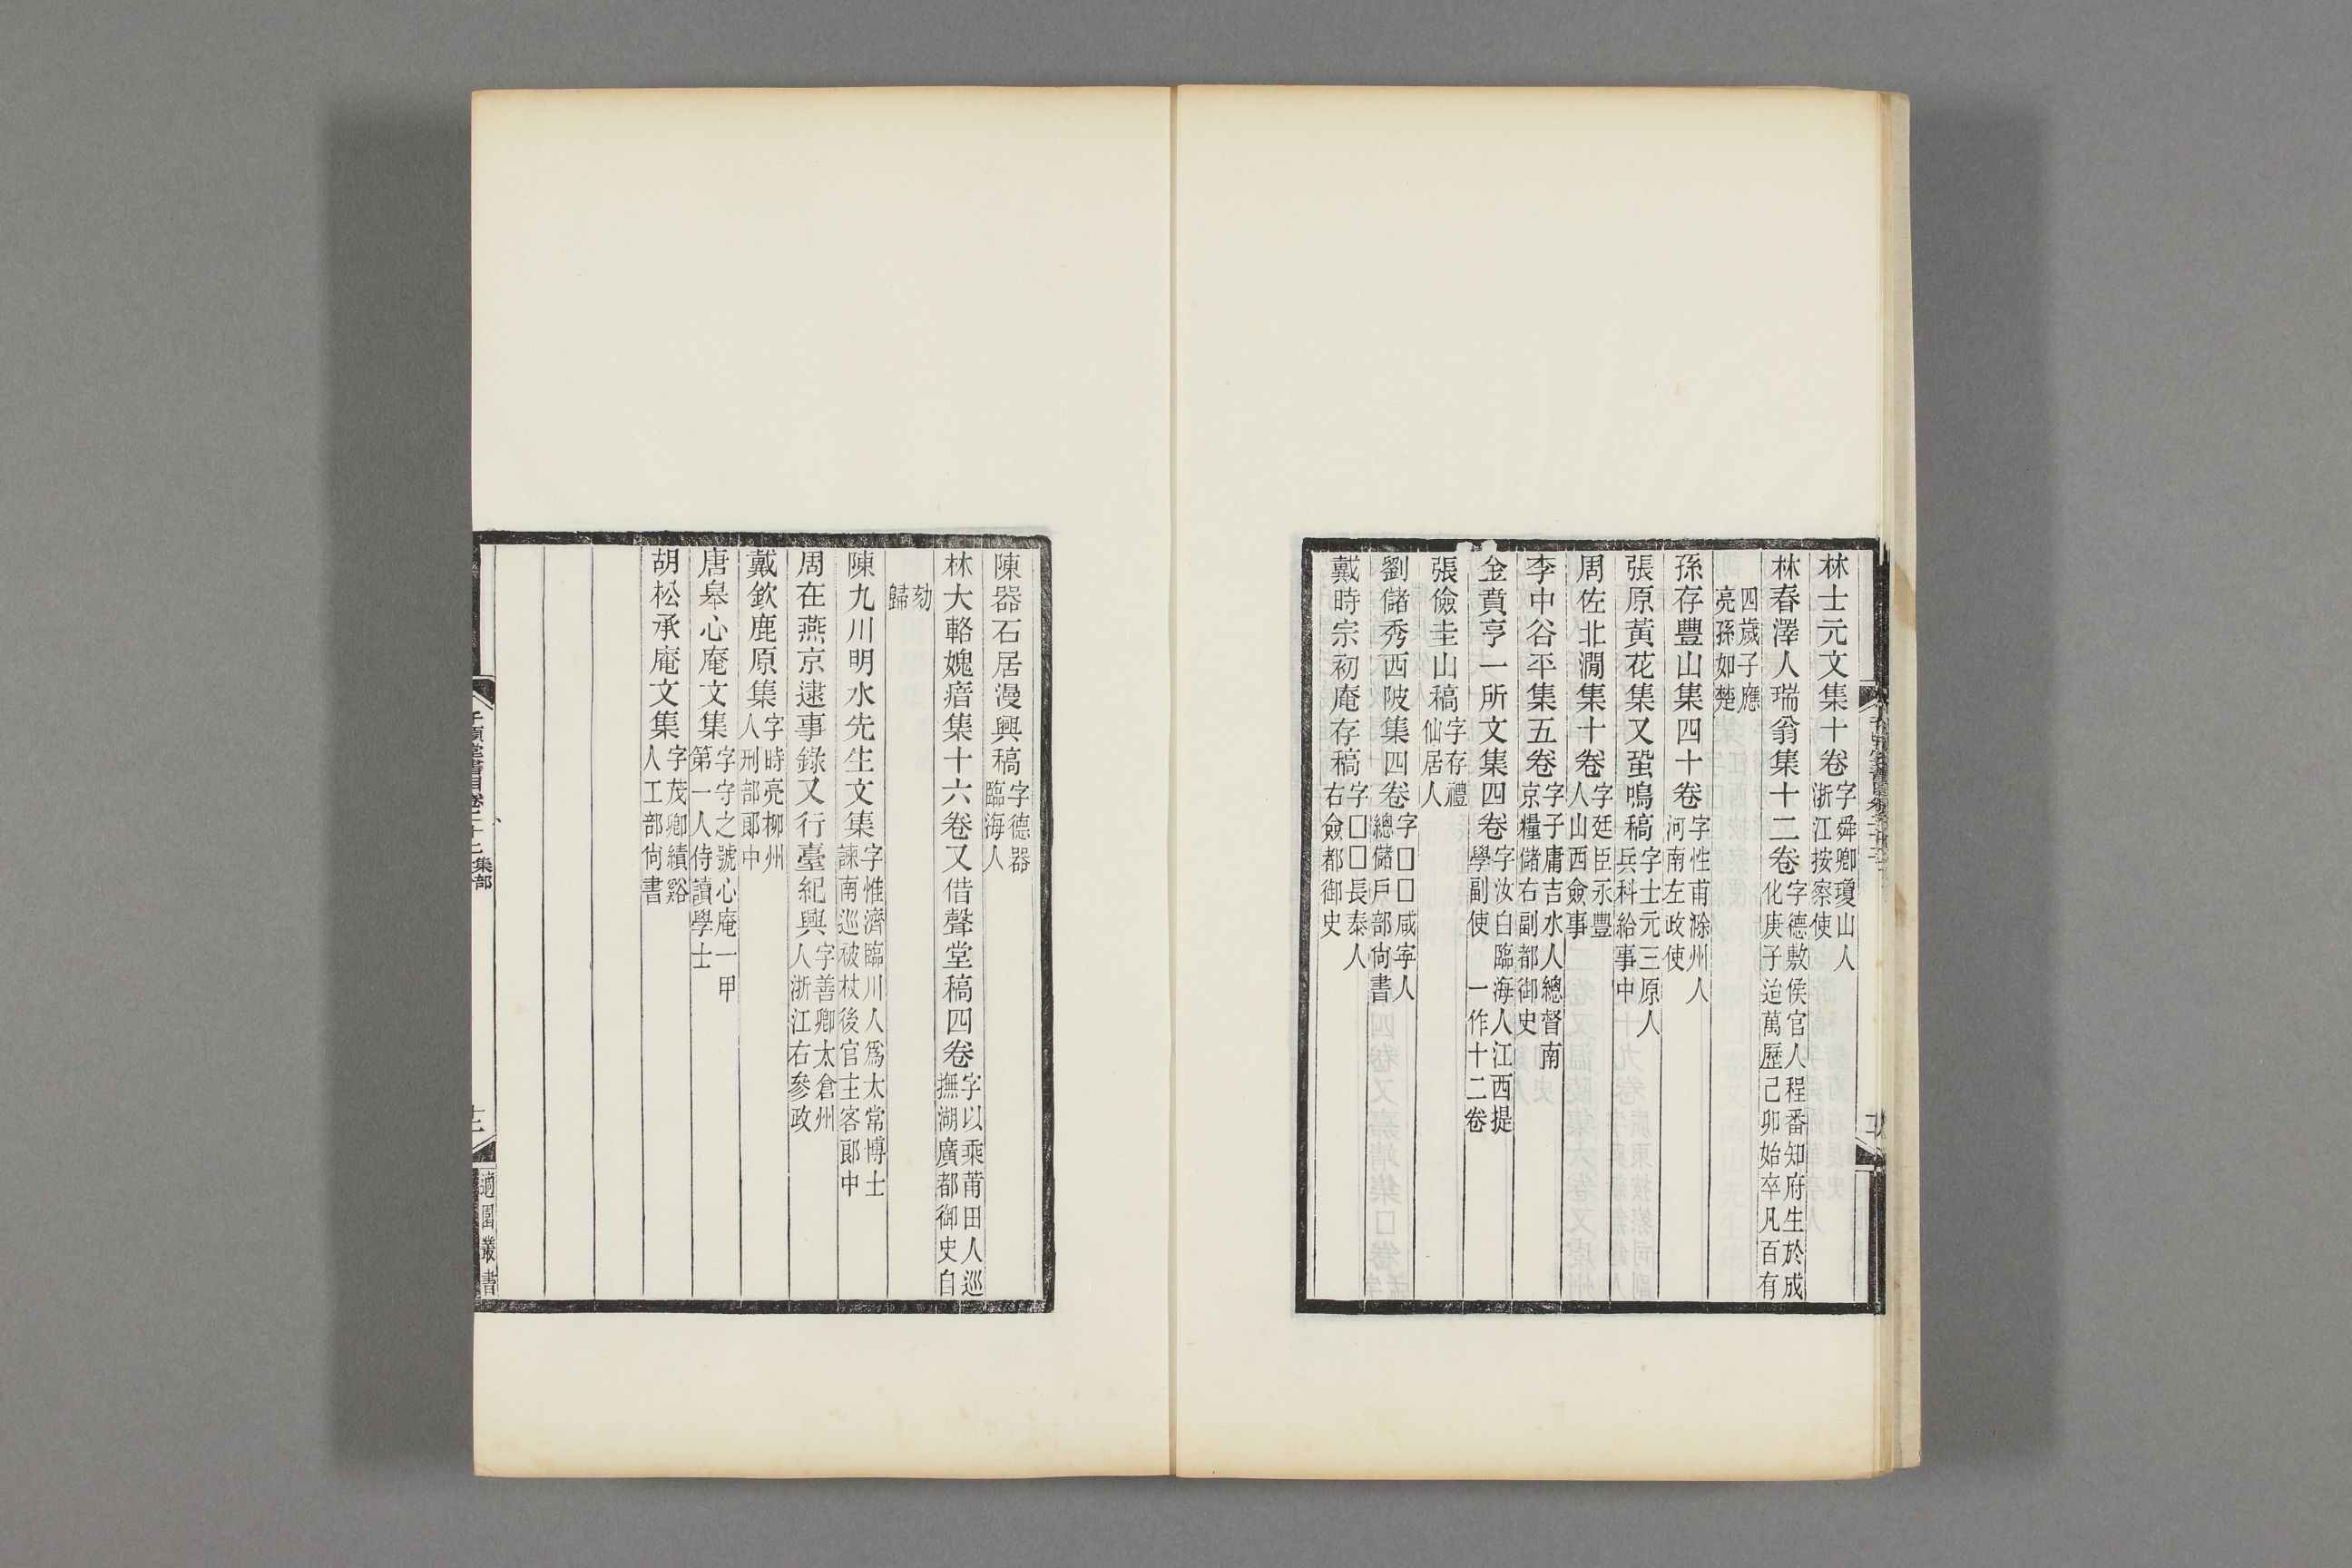 林士元文集十卷字舜卿瓊山人浙江按察使
林春澤人瑞翁集十二卷字德敷侯官人程番知府生於成化庚子迨萬歷己卯始卒凡百有
四歲子應亮孫如楚
孫存豐山集四十卷字性甫滁州人河南左政使
張原黃花集又蛩鳴稿字士元三原人兵科給事中
周佐北澗集十卷字廷臣永豐人山西僉事
李中谷平集五卷字子庸吉水人總督南京糧儲右副都御史
金賁亨一所文集四卷字汝白臨海人江西提學副使 一作十二卷
張儉圭山稿字存禮仙居人
劉儲秀西陂集四卷字□□咸寜人總儲戶部尙書
戴時宗初庵存稿字□□長泰人右僉都御史
陳器石居漫興稿字德器臨海人
林大輅媿瘖集十六卷又借聲堂稿四卷字以乘莆田人巡撫湖廣都御史自
劾歸
陳九川明水先生文集字惟濬臨川人爲太常博士諫南巡被杖後官主客郎中
周在燕京逮事錄又行臺紀興字善卿太倉州人浙江右參政
戴欽鹿原集字時亮柳州人刑部郎中
唐皋心庵文集字守之號心庵一甲第一人侍讀學士
胡松承庵文集字茂卿績谿人工部尙書
千頃堂書目卷二十二集部
適園叢書